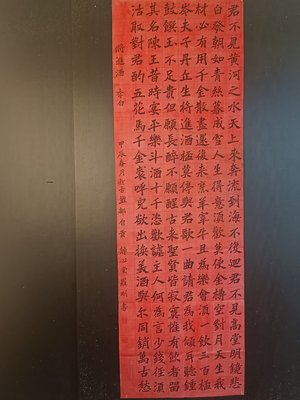 君不見黃河之水天上來奔流到海不復迴君不見高堂明鏡悲
白發朝如青絲暮成雪人生得意須歡莫使金樽空對月天生我
材必有用千金散盡還復來烹羊宰牛且為樂會須一飲三百杯
岑夫子丹丘生將進酒杯莫停與君歌一曲請君為我傾耳聽鐘
鼓饌玉不足貴但願長醉不願醒古來聖賢皆寂寞惟有飲者留
其名陳王昔時宴平樂斗酒十千恣歡謔主人何為言少錢徑須
沽取對君酌五花馬千金裘呼兒欲出換美酒與爾同銷萬古愁
將進酒 李白 甲辰春月於古 書